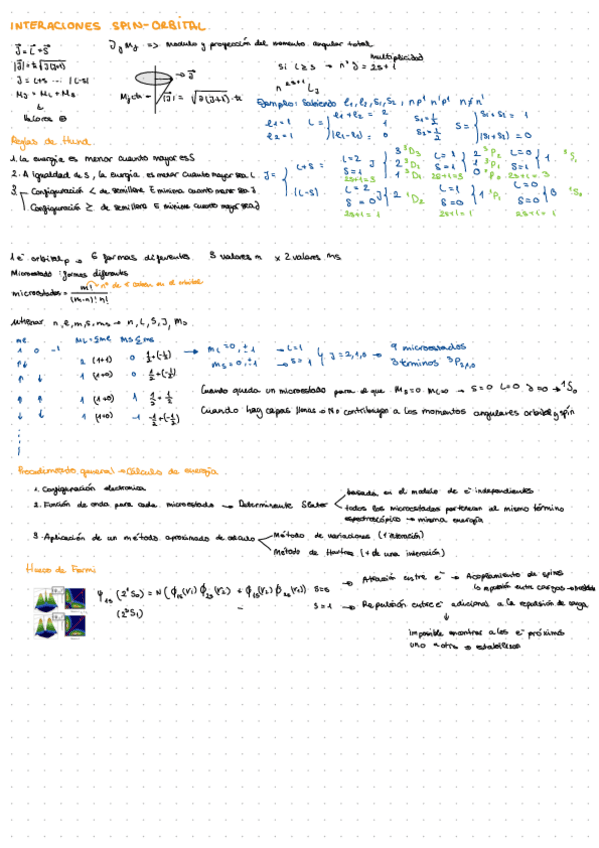 INTERACIONES SPIN-ORBITAL
J = L + S
J y MJ => modulo y proyección del momento angular total
|J| = ħ√J(J+1)
J = L+S ... |L-S|
MJ = ML + MS
Valores
MJ ħ
|J| = √J(J+1) · ħ
Si L ≥ S → nº J = 2S+1
multiplicidad
n 2S+1 LJ
Ejemplo: Sabiendo l1, l2, S1, S2, np1 n'p1 n≠n'
l1 = 1
l2 = 1
L =
l1 + l2 = 2
1
|l1 - l2| = 0
S1 = 1/2
S2 = 1/2
S =
S1 + S2 = 1
|S1 + S2| = 0
Reglas de Hund
1. La energía es menor cuanto mayor es S
2. A igualdad de S, la energía es menor cuanto mayor sea L
3. Configuración < de semillena E minima cuanto menor sea J
Configuración ≥ de semillena E minima cuanto mayor sea J
J =
L+S =
|L-S|
L = 2
S = 1
2S+1 = 3
J
3 3D3
2 3D2
1 3D1
L = 1
S = 1
2S+1 = 3
2 3P2
1 3P1
0 3P0
L = 0
S = 1
2S+1 = 3
1
3S1
L = 2
S = 0
2S+1 = 1
J
2 1D2
L = 1
S = 0
2S+1 = 1
1 1P1
L = 0
S = 0
2S+1 = 1
0
1S0
1 e- orbital p → 6 formas diferentes 3 valores m x 2 valores ms
Microestado: formas diferentes
microestados = m! / (m-n)! n!
→ nº de e- caben en el orbital
n, l, m, s, ms → n, L, S, J, MJ
ml
1 0 -1
ML = Σml
MS = Σms
↑↓ 2 (1+1) 0 1/2 + (-1/2)
↑ ↓ 1 (1+0) 0 1/2 + (-1/2)
↑ ↑ 1 (1+0) 1 1/2 + 1/2
↓ ↓ 1 (1+0) -1 -1/2 + (-1/2)
→ ML = 0, ±1 → L = 1
MS = 0, ±1 → S = 1
y J = 2,1,0 →
9 microestados
3 términos 3P2,1,0
Cuando queda un microestado para el que MS = 0 ML = 0 → S = 0 L = 0 J = 0 → 1S0
Cuando hay capas llenas → No contribuyen a los momentos angulares orbital y spin
Procedimiento general → Cálculo de energía
1. Configuración electronica
2. Función de onda para cada microestado → Determinante Slater
basada en el modelo de e- independientes
todos los microestados pertenecen al mismo término espectroscópico → misma energía
3. Aplicación de un método aproximado de cálculo
Método de variaciones (1 interacción)
Método de Hartree (+ de una interacción)
Hueco de Fermi
(2 1S0) = N (Φ1s(r1) Φ2s(r2) + Φ1s(r2) Φ2s(r1)) S = 0
(2 3S1) - S = 1
→ Atracción entre e- → Acoplamiento de spines
→ Repulsión entre e- adicional a la repulsión de carga
Imposible encontrar a los e- próximos
uno a otro →